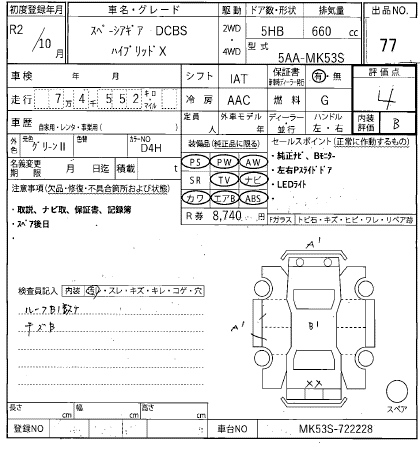 初度登録年月 車名・グレード 駆動 ドア数・形状 排気量 出品NO.
R2/10月 スペーシアギア DCBS ハイブリッドX 2WD・4WD 5HB 660 cc 77
型式 5AA-MK53S
車検 年 月 シフト IAT 保証書 有・無 評価点
走行 7万4千552キロマイル 冷房 AAC 燃料 G 4
車歴 自家用・レンタ・事業用( ) 定員 人 外車モデル 年 ディーラー・並行 ハンドル 左・右 内装評価 B
外色 元色 グリーンII カラーNO D4H 装備品(純正品に限る) セールスポイント(正常に作動するもの)
名義変更期限 月 日迄 積載 t PS PW AW ・純正ナビ、Bモニター
注意事項(欠品・修復・不具合箇所および状態) SR TV ナビ ・左右Pスライドドア
・取説、ナビ取、保証書、記録簿 カワ エアB ABS ・LEDライト
・スペア後日 R券 8,740円 Fガラス トビ石・キズ・ヒビ・ワレ・リペア跡
検査員記入 内装 汚・スレ・キズ・キレ・コゲ・穴
A1
A1 B1
キズB
XX
スペア
長さ cm 幅 cm 高さ cm
登録NO 車台NO MK53S-722228